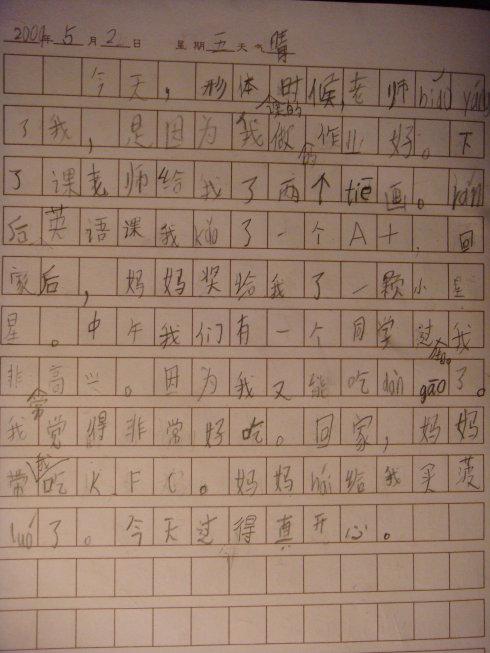 2009年5月2日 星期五天气晴
今天，形体课的时候，老师biǎo yáng
了我，是因为我做的作业好。下
了课老师给我了两个tiē画。rán
后英语课我kǎo了一个A+。回
家后，妈妈奖给我了一颗小星
星。中午我们有一个同学过生日。我
非高兴。因为我又能吃dàn gāo了。
我觉得非常好吃。回家，妈妈
带我吃KFC。妈妈hái给我买菠
luó了。今天过得真开心。